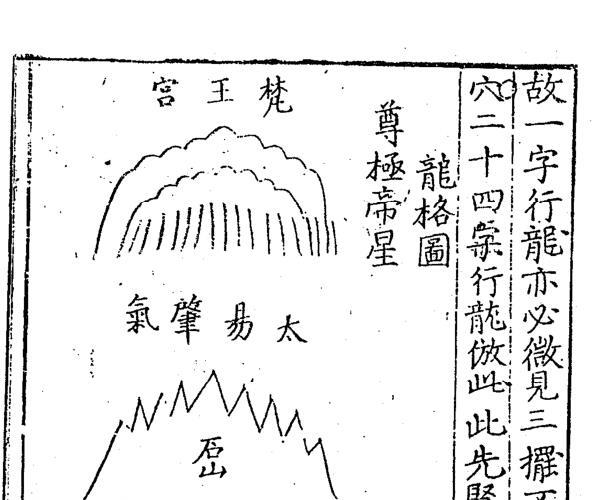 故一字行龍亦必微見三擺
穴二十四行龍倣此此先
龍格圖
尊極帝星
梵王宮
太易肇氣
石山